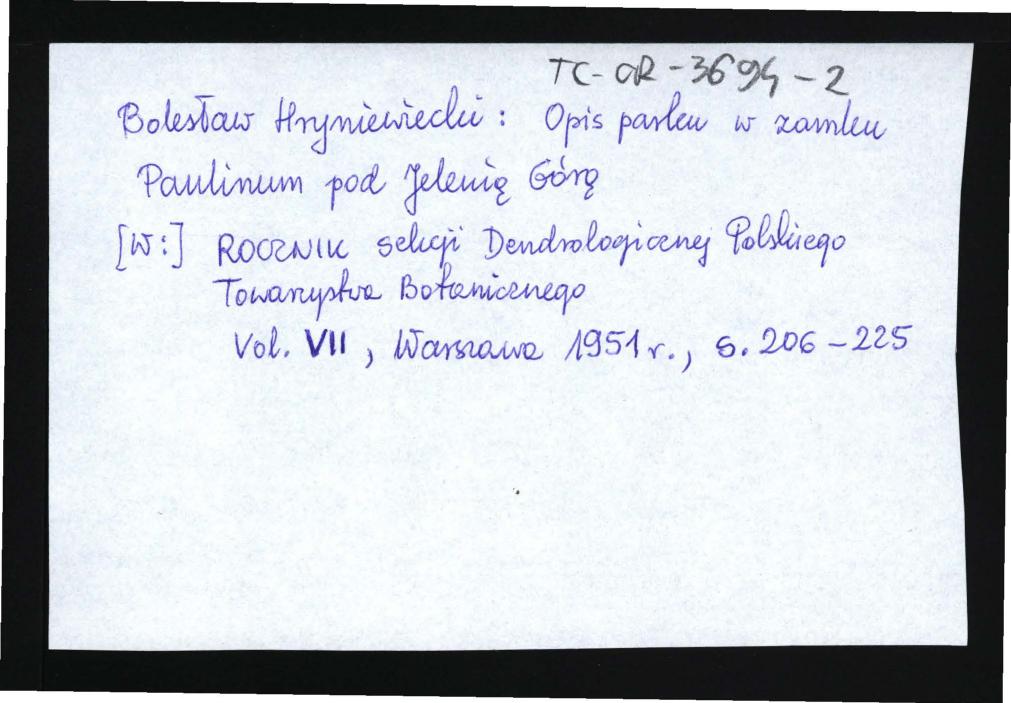 TC-OR-3694-2
Bolesław Hryniewiecki: Opis parku w zamku
Paulinum pod Jelenią Górą
[w:] ROCZNIK sekcji Dendrologicznej Polskiego
Towarzystwa Botanicznego
Vol. VII, Warszawa 1951 r., s. 206-225